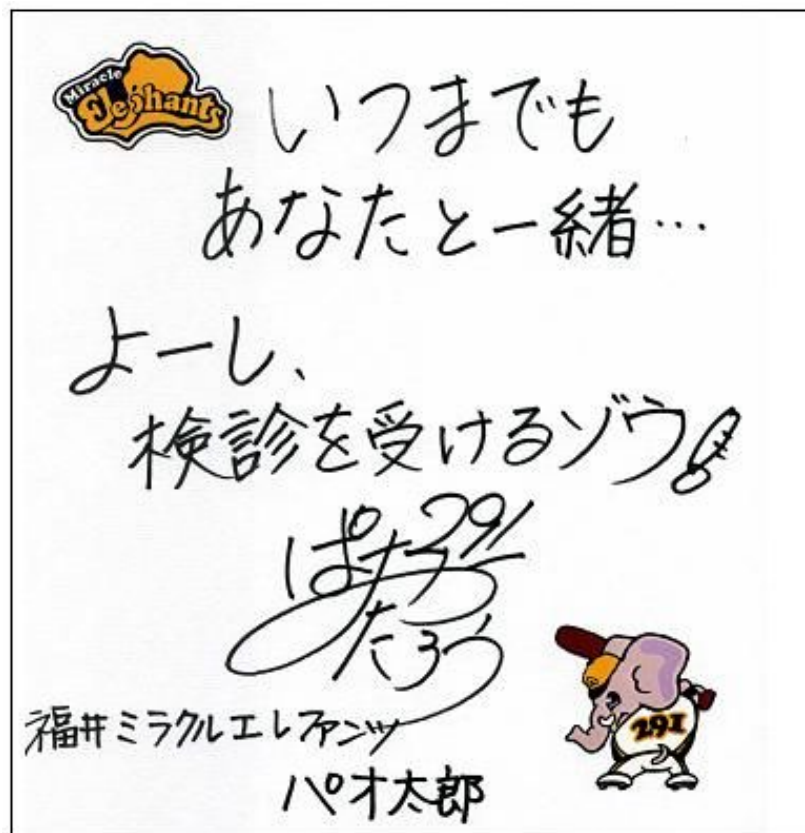 Miracle
Elephants
いつまでも
あなたと一緒…
よーし、
検診を受けるゾウ!
291
ぱお
たろう
福井ミラクルエレファンツ
パオ太郎
291